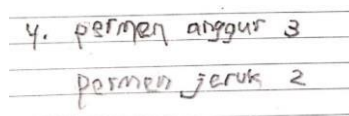 4. permen anggur 3
permen jeruk 2